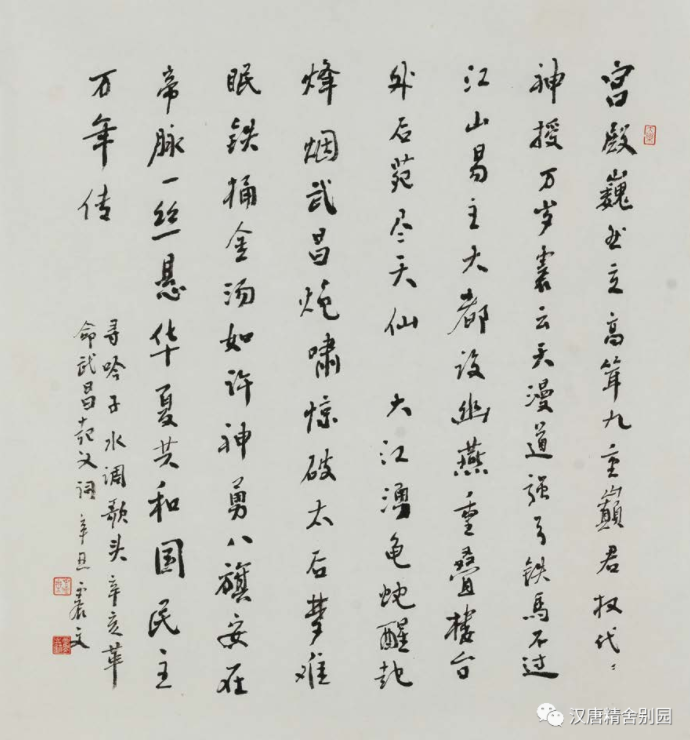 宫殿巍然立高耸九重巅君权代々
神授万岁震云天漫道强弓铁马不过
江山易主大都设幽燕重叠楼台
外后苑尽天仙 大江湧龟蛇醒起
烽烟武昌炮啸惊破太后梦难
眠铁桶金汤如许神勇八旗安在
帝脉一丝悬华夏共和国民主
万年传
寻吟子水调歌头辛亥革
命武昌起义词 辛丑 震文
汉唐精舍别园